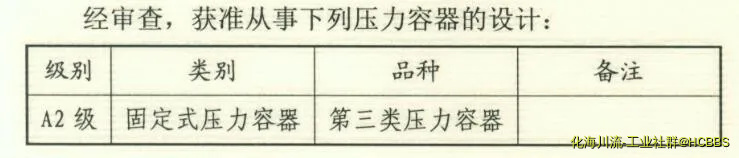 经审查，获准从事下列压力容器的设计：
级别 类别 品种 备注
A2级 固定式压力容器 第三类压力容器
化海川流-工业社群@HCBBS